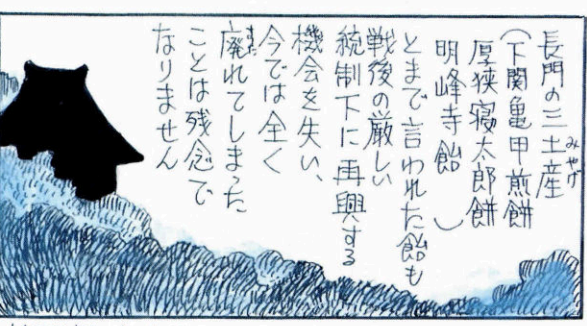 長門の三土産
みやげ
(下関亀甲煎餅
厚狭寝太郎餅
明峰寺飴)
とまで言われた飴も
戦後の厳しい
統制下に再興する
機会を失い、
今では全く
廃れてしまった
ことは残念で
なりません